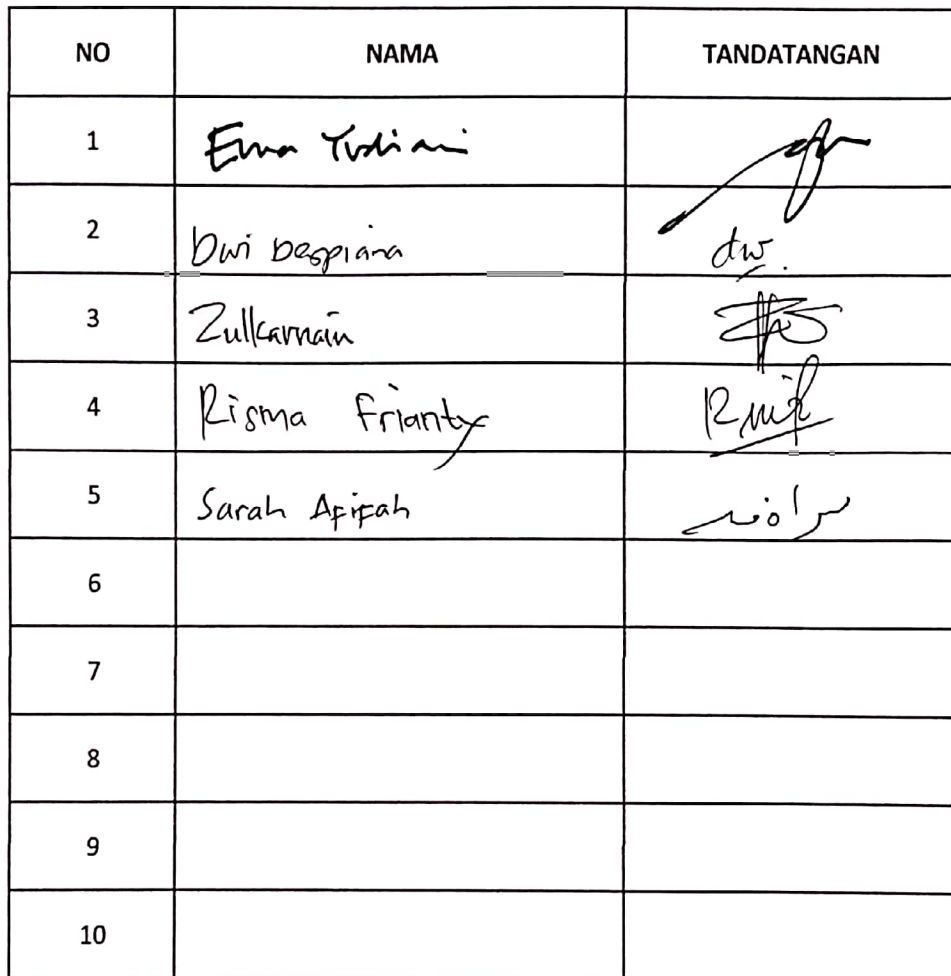 NO NAMA TANDATANGAN
1 Erna Yudiani
2 Dwi Despiana dw.
3 Zulkarnain
4 Risma Frianty
5 Sarah Afifah
6
7
8
9
10